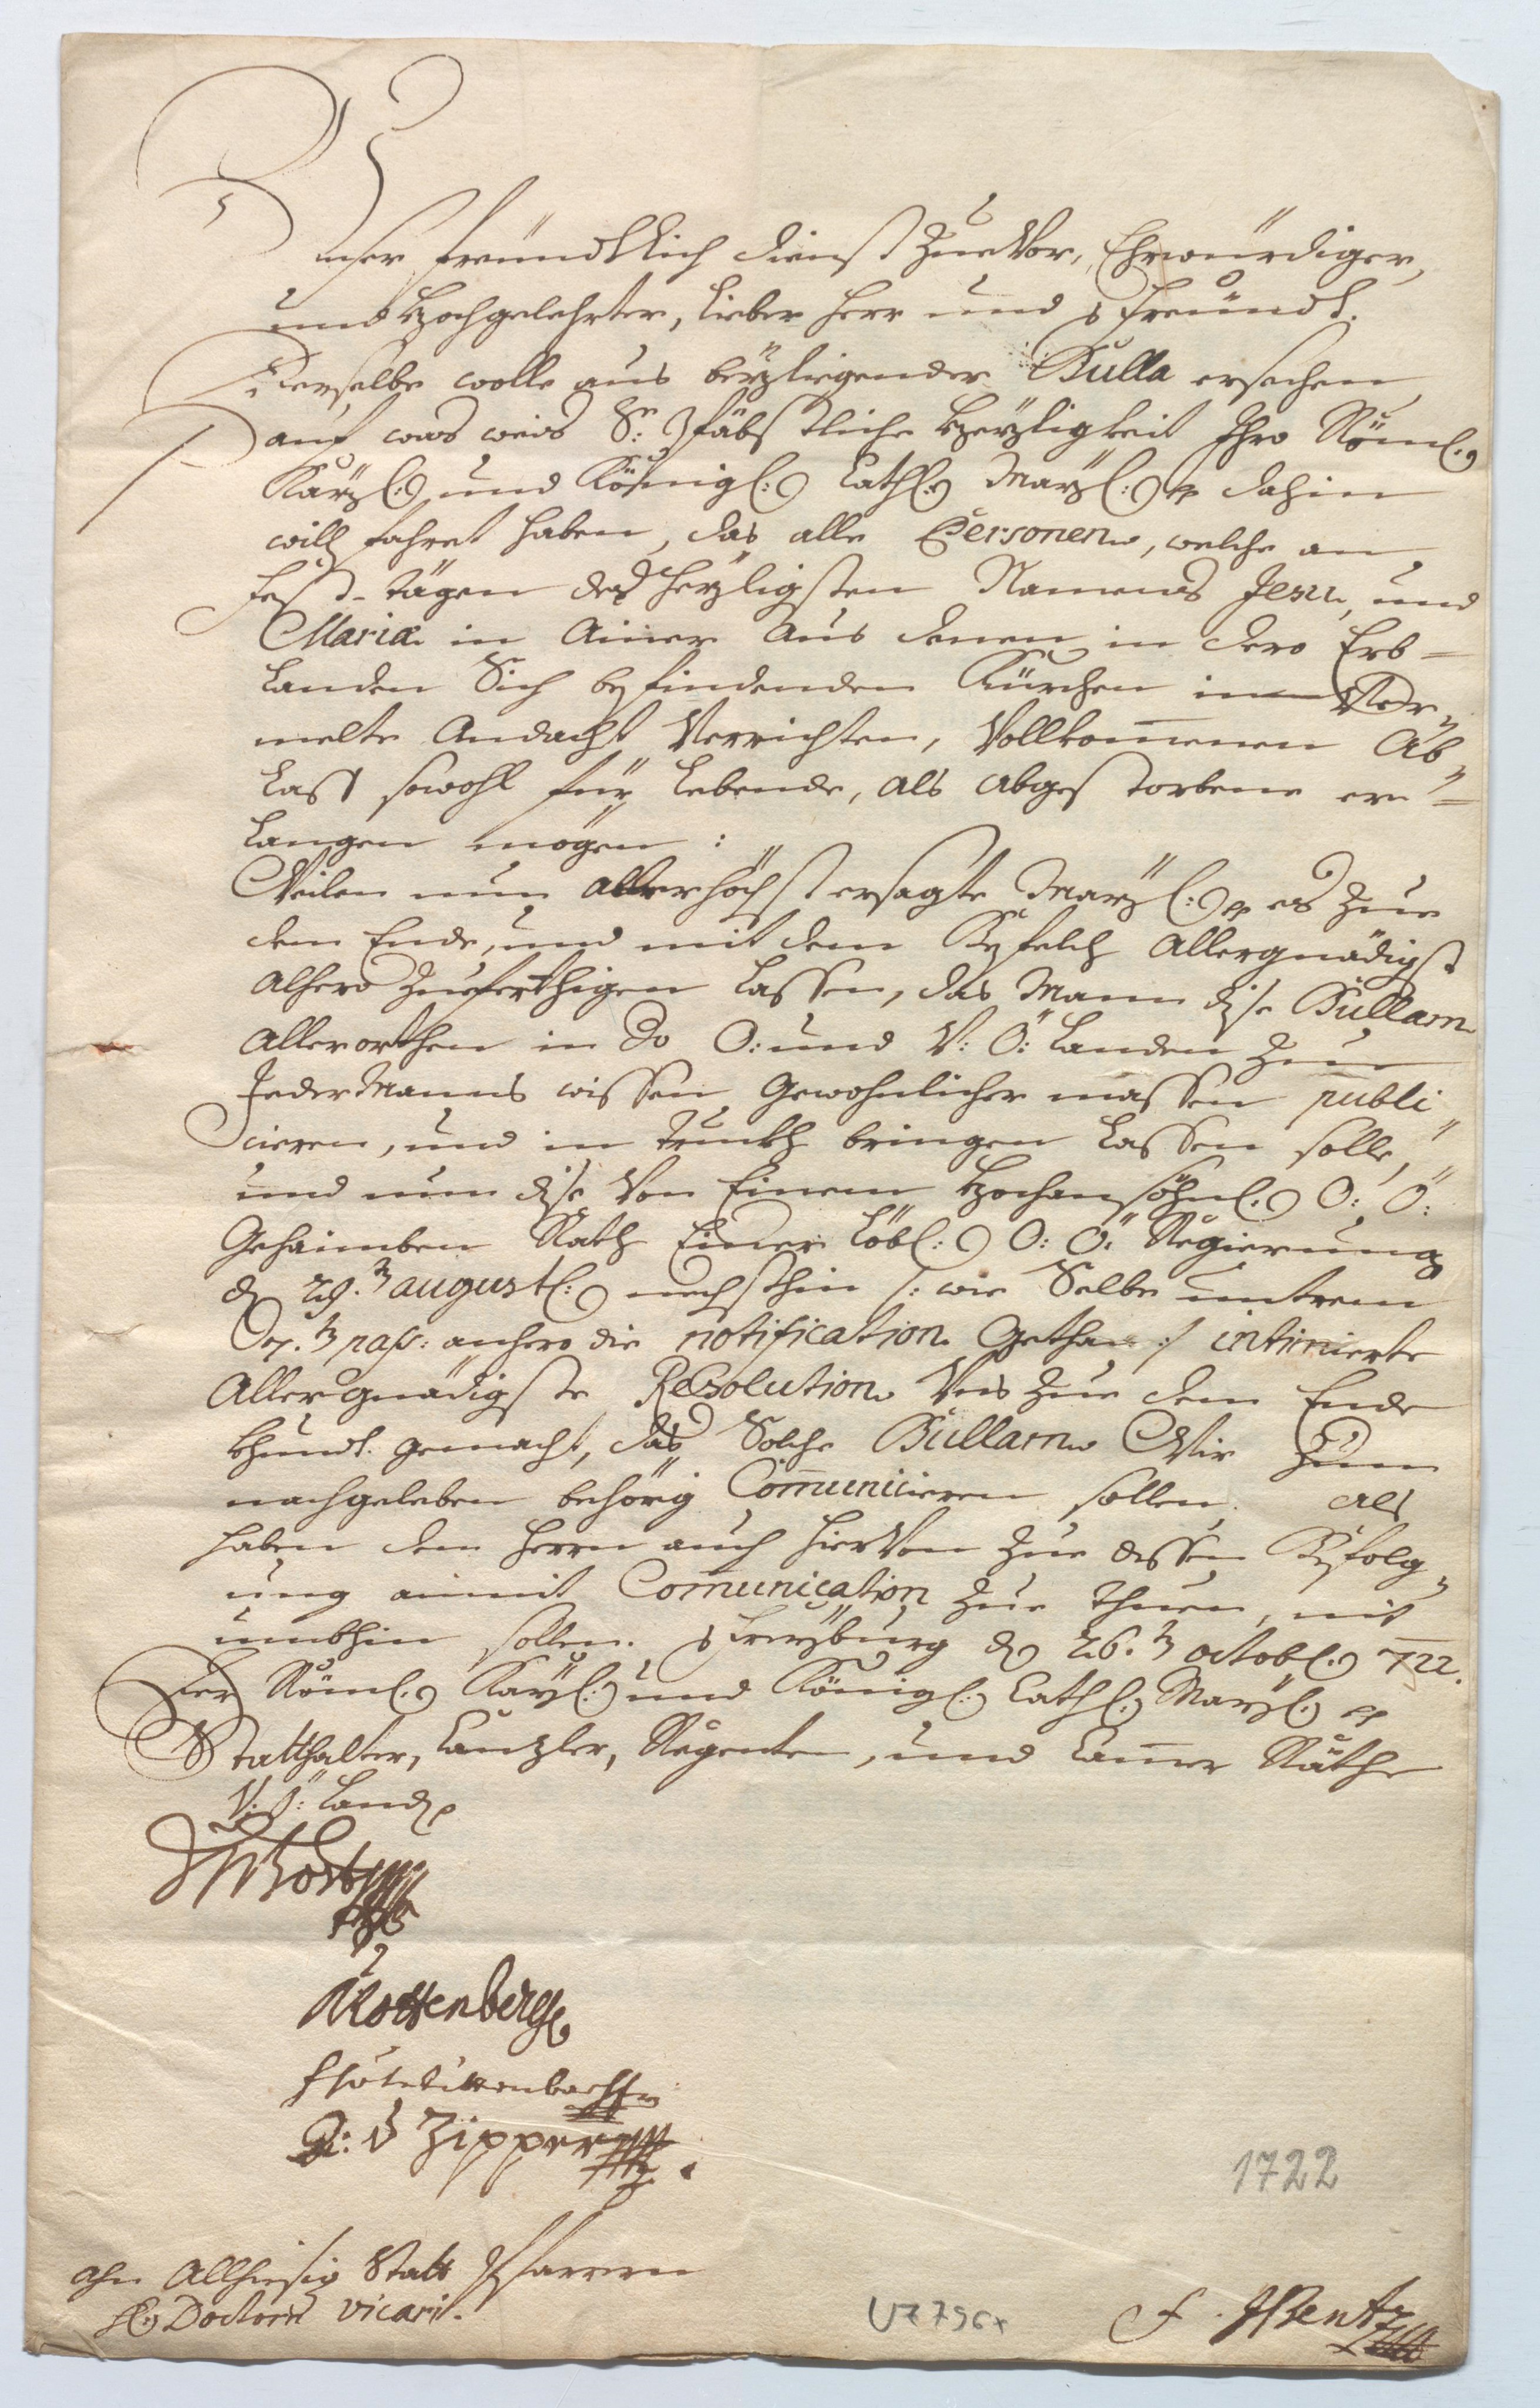 Unser freundtlich dienst zue Vor, Ehrwürdiger,
und Hochgelehrter, lieber Herr und Freündt.
Derselbe wolle aus beyligender Bulla ersehen,
auf was weis Sr: Päbstliche Heyligkeit Ihro Röml:
Kayl: und Königl: Cathl: Mayl: p dahin
willfahret haben, das alle Personen, welche an
Fest-tägen des heyligsten Namens Jesu, und
Mariæ in Ainer Aus denen in dero Erb=
Landen Sich befindenden Kürchen
melte Andacht Verrichten, Vollkom̄enen Ab„
lass sowohl für Lebende, als abgestorbene er=
langen mögen:
Weilen nun allerhöchst ersagte Mayl: p es zue
dem Ende, und mit dem Befelch Allergnädigst
alhero Zueferthigen lassen, das Mann dise Bullam
Allerorthen in do O: und V: Ö: Landen zue
JederManns wissen Gewohnlicher massen publi„
cieren, und in Truckh bringen lassen solle,
und nun dise Von Einem Hochansöhnl: O: Ö:
Gehaimben Rath Einer Löbl: O: Ö: Regierung
d 29.ten augustl: nechsthin /: wie Selbe unterm
pass: anhero die notification Gethan :/ intimierte
Allergnädigste Resolution Uns zue dem Ende
khundt gemacht, das Solche Bullam Wir zum
nachgeleben behörig Com̄unicieren sollen. als
haben dem Herrn auch hierVon zue dessen Befolg„
ung animit Com̄unication zue thuen, nit
umbhin sollen. Freyburg d 26.ten octobl: 722.
Der Röml: Kayl: und Königl: Cathl: Mayl: pp
Statthalter, Canzler, Regenten, und Cam̄er Räthe
V: Ö: Landen
Rottenberg
Zipper
1722
ahn Allhiesig Statt Pfarrern
H: Doctorn Vicari.